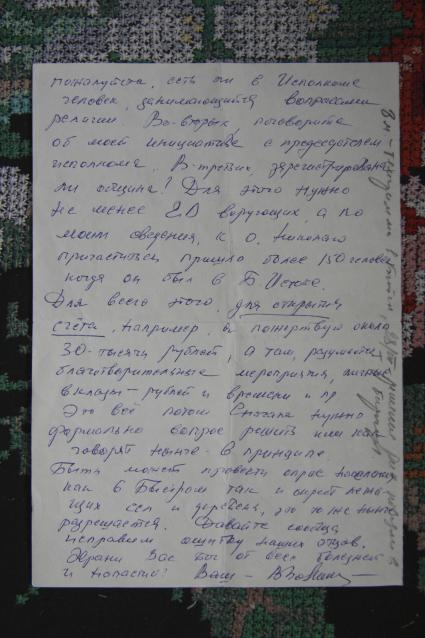 пожалуйста, есть ли в Исполкоме
человек, занимающийся вопросами
религии. Во-вторых поговорите
об моей инициативе с председателем
исполкома. В-третьих, зарегистрирована
ли община? Для этого нужно
не менее 20 верующих, а по
моим сведениям, к о. Николаю
причаститься пришло более 150 человек
когда он был в Б. Истоке.
Для всего этого, для открытия
счёта, например, я пожертвую около
30-тысяч рублей, а там, разумеется
благотворительные мероприятия, личные
вклады - рублей и времени и пр
Это всё потом. Сначала нужно
формально вопрос решить или как
говорят нынче - в принципе.
Быть может провести опрос населения
как в Быстром так и окрест лежа
щих сел и деревень, это тоже ныне
разрешается. Давайте сообща
исправим ошибку наших отцов.
Храни Вас Бог от всех болезней
и напастей! Ваш -